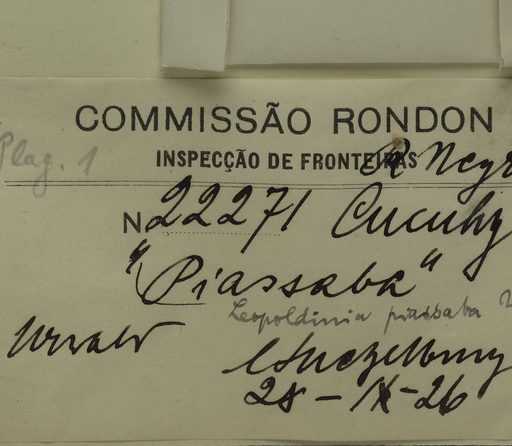 COMMISSÃO RONDON
Plag. 1
INSPECÇÃO DE FRONTEIRAS
R Negr
N 22271 Cucuhy
"Piassaba"
Leopoldinia piassaba
Urwald
Luetzelburg
28-IX-26